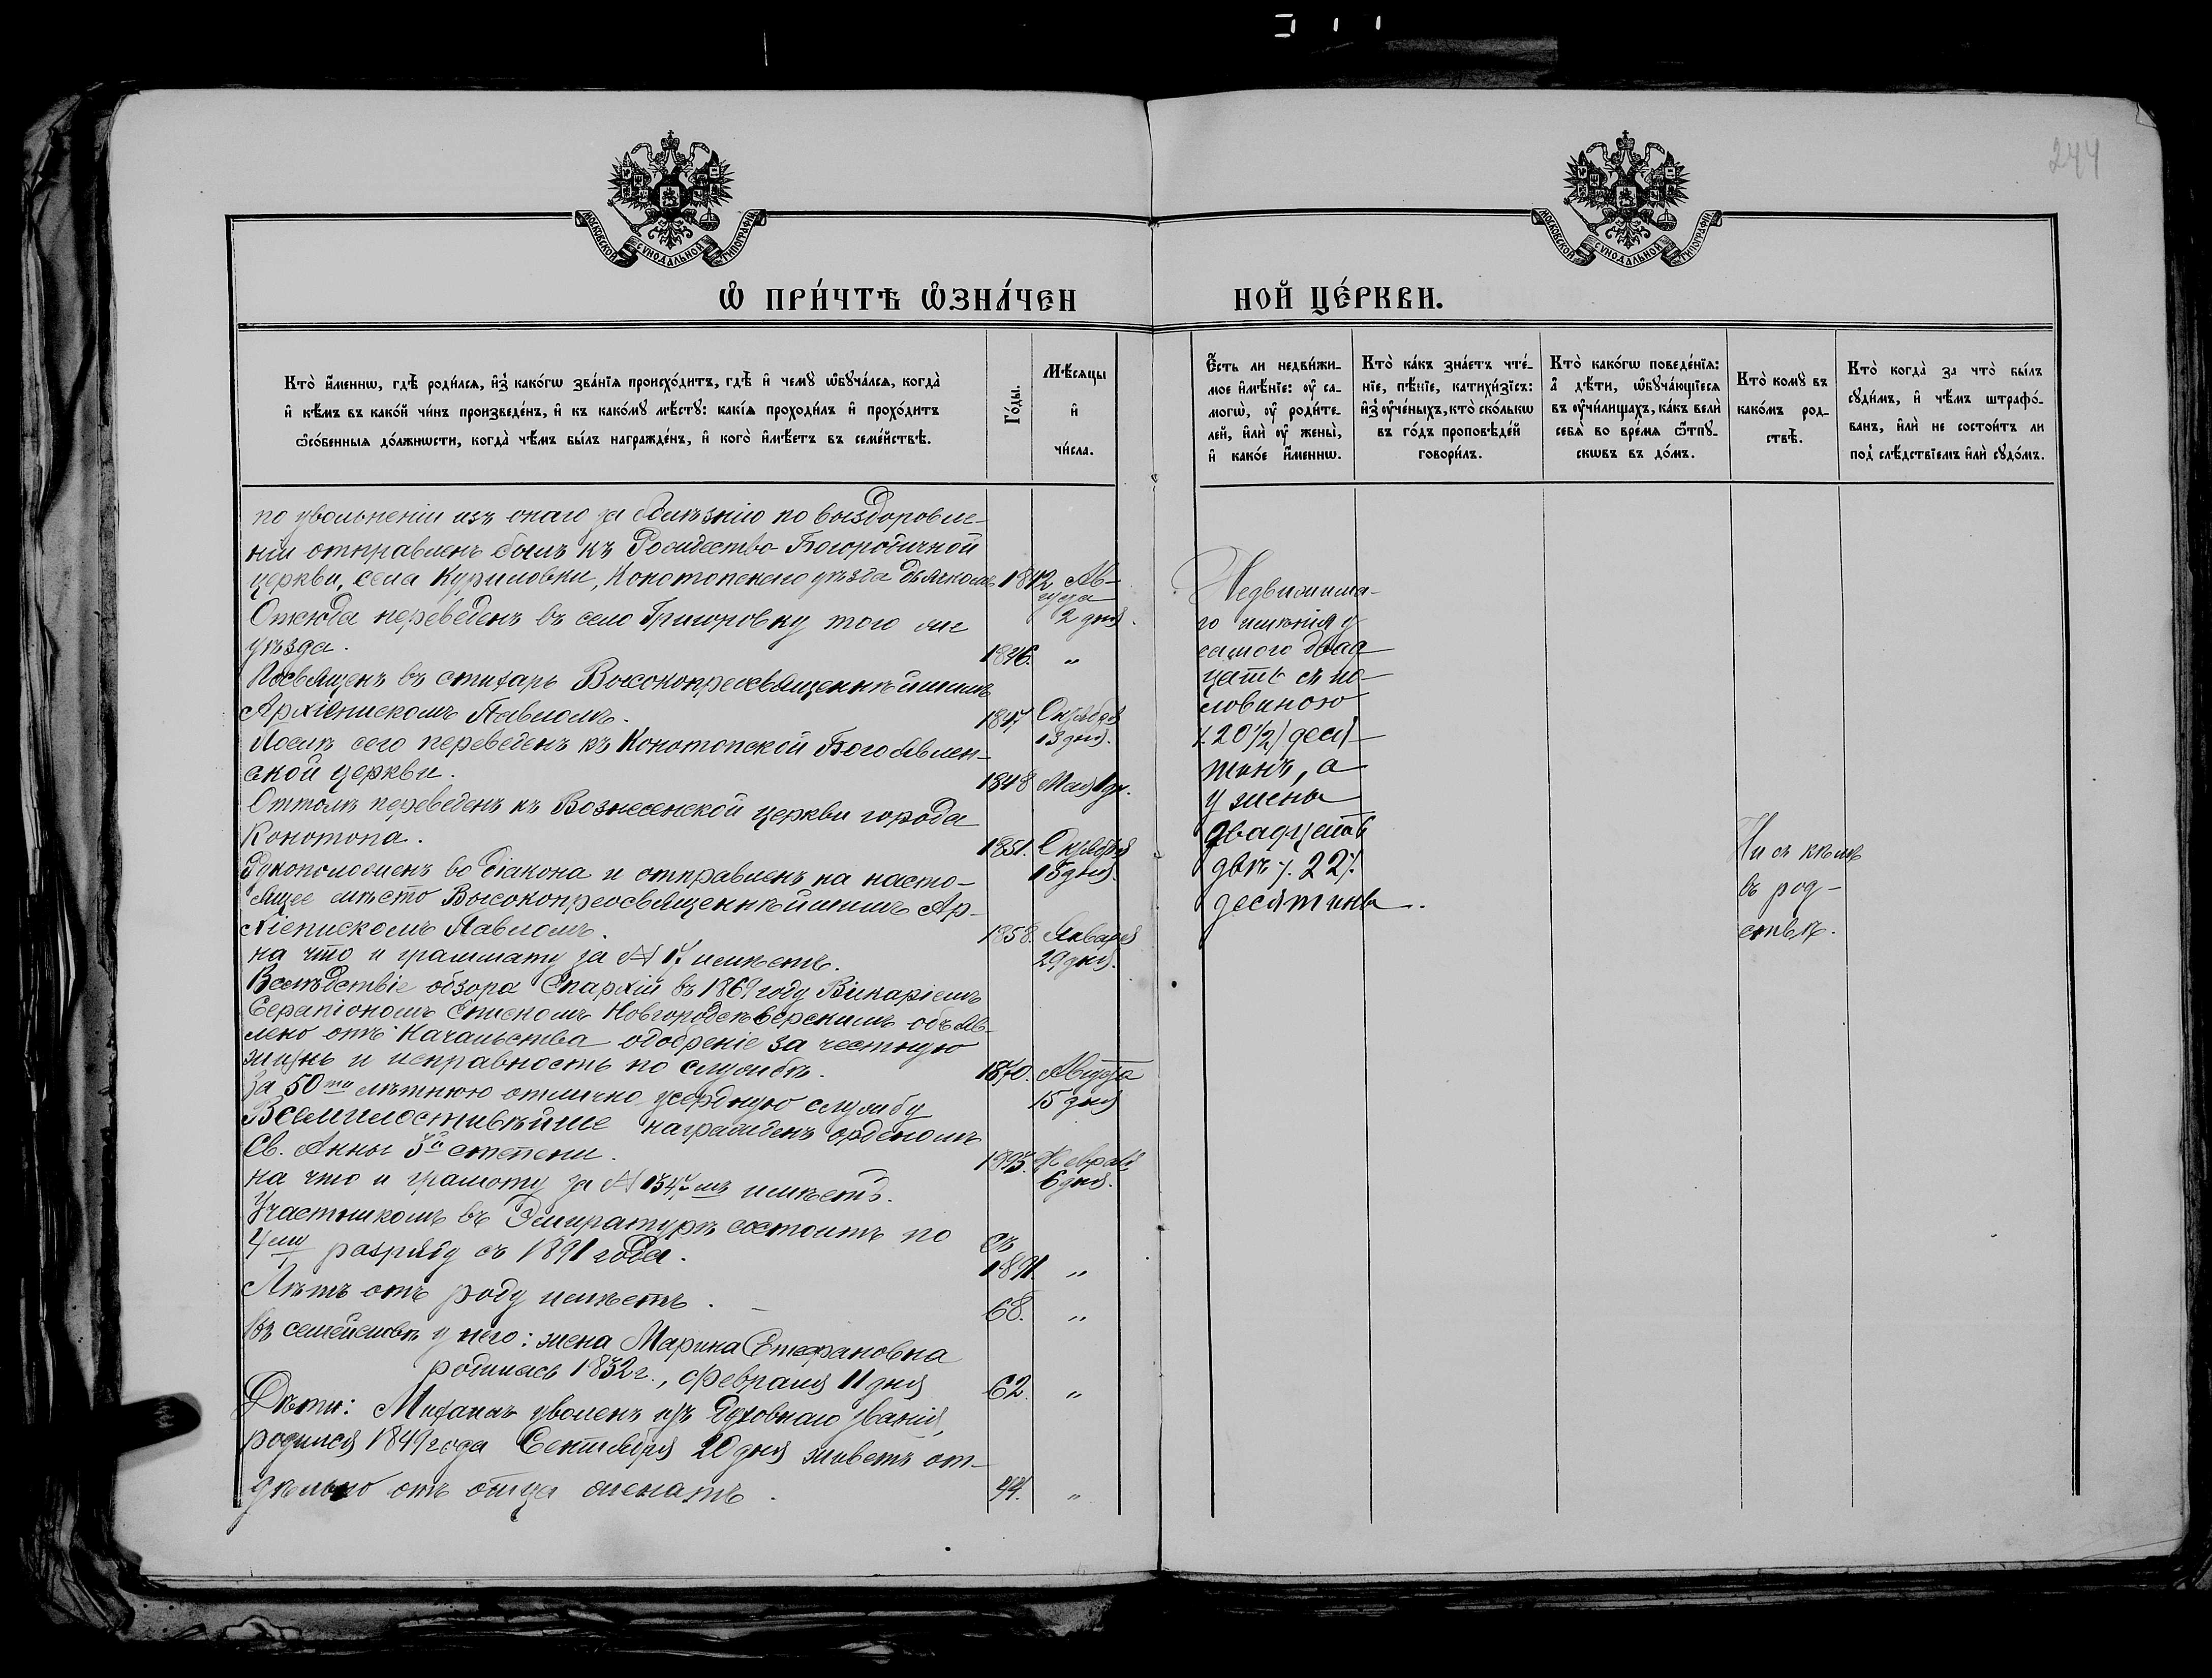 244
МОСКОВСКОЙ СУНОДАЛЬНОЙ ТИПОГРАФІИ
МОСКОВСКОЙ СУНОДАЛЬНОЙ ТИПОГРАФІИ
Ѡ҆ ПРИ́ЧТѢ Ѡ҆ЗНА́ЧЕН
НОЙ ЦЕ́РКВИ.
Кто̀ и҆́менно, гдѣ̀ роди́лсѧ, и҆з̾ како́гѡ зва́нїѧ происхо́дитъ, гдѣ̀ и҆ чемꙋ̀ ѡ҆бꙋча́лсѧ, когда̀
и҆ кѣ́мъ въ како́й чи́нъ произведе́нъ, и҆ къ како́мꙋ мѣ́стꙋ: какі̑ѧ проходи́лъ и҆ прохо́дитъ
ѻ҆со́бенныѧ до́лжнѡсти, когда̀ чѣ́мъ бы́лъ награжде́нъ, и҆ кого̀ и҆мѣ́етъ въ семе́йствѣ.
Го́ды.
Мѣ́сѧцы
и҆
чи́сла.
Є҆́сть ли недви́жи-
мое и҆мѣ́нїе: ᲂу҆ са-
могѡ̀, ᲂу҆ роди́те-
лей, и҆лѝ ᲂу҆ жены̀,
и҆ како́е и҆́меннѡ.
Кто̀ ка́къ зна́етъ чте́-
нїе, пѣ́нїе, катихи́зїсъ:
и҆з̾ ᲂу҆че́ныхъ, кто̀ ско́лькѡ
въ го́дъ проповѣ́дей
говори́лъ.
Кто̀ како́гѡ поведе́нїѧ:
а҆ дѣ́ти, ѡ҆бꙋча́ющїесѧ
въ ᲂу҆чи́лищахъ, ка́къ велѝ
себѧ̀ во вре́мѧ ѿпꙋ-
сковъ въ до́мъ.
Кто̀ комꙋ̀ въ
како́мъ род-
ствѣ̀.
Кто̀ когда̀ за что̀ бы́лъ
сꙋди́мъ, и҆ чѣ́мъ штрафо́-
ванъ, и҆лѝ не состои́тъ ли
под̾ слѣ́дствїемъ и҆лѝ сꙋдо́мъ.
по увольненіи изъ онаго за болѣзнію по выздоровле-
ніи отправленъ былъ къ Рождество-Богородичной
церкви, села Куриловки, Конотопскаго уѣзда дьячкомъ 1842 Ав-
густа
2 дня.
Откюда переведенъ въ село Григоровку того же
уѣзда. 1846. „
Посвященъ въ стихарь Высокопреосвященнѣйшимъ
Архіепископомъ Павломъ. 1847 Октября
13 дня.
Послѣ сего переведенъ къ Конотопской Богоявлен-
ской церкви. 1848 Мая 1 дн.
Оттолѣ переведенъ къ Вознесенской церкви города
Конотопа. 1851. Октября
15 дня.
Рукоположенъ во діакона и отправленъ на насто-
ящее мѣсто Высокопреосвященнѣйшимъ Ар-
хіепископомъ Павломъ. 1858. Января
на что и граммату за № 17 имѣетъ. 29 дня.
Вслѣдствіе обзора Епархіи въ 1869 году Викаріемъ
Серапіономъ Епископомъ Новгородсѣверскимъ объяв-
лено отъ Начальства одобреніе за честную
жизнь и исправность по службѣ. 1870. Августа
15 дня
За 50ти лѣтнюю отлично усердную службу
Всемилостивѣйше награжденъ орденомъ
Св. Анны 3й степени. 1893. Февраля
6 дня.
на что и грамоту за № 1347мъ имѣетъ.
Участникомъ въ Эмиратурѣ состоитъ по
4му разряду съ 1891 года. съ
1891. „
Лѣтъ отъ роду имѣетъ. 68. „
Въ семействѣ у него: жена Марина Стефановна
родилась 1832 г., февраля 11 дня 62. „
Дѣти: Михаилъ уволенъ изъ Духовнаго званія,
родился 1849 года Сентября 20 дня живетъ от-
дѣльно отъ отца женатъ. 44. „
Недвижима-
го имѣнія у
самого двад
цать съ по
ловиною
/.20½/ деся-
тинъ, а
у жены
двадцать
двѣ /. 22 /.
десятины.
Ни съ кѣмъ
въ род-
ствѣ.